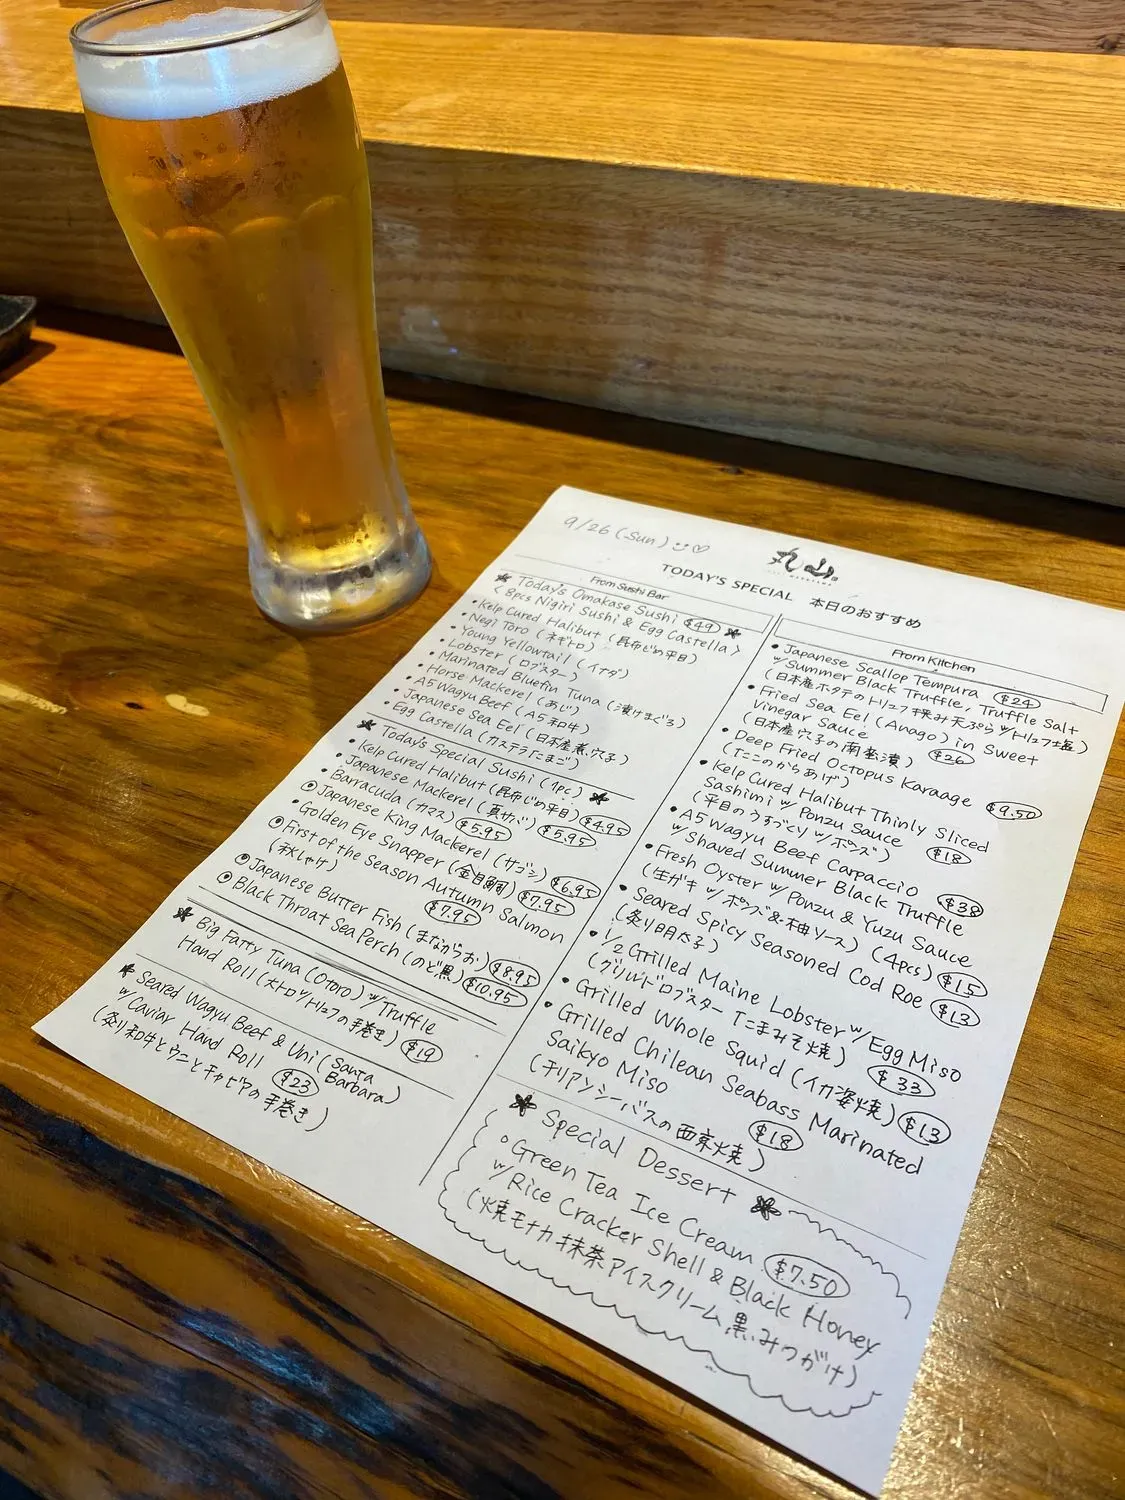 9/26 (Sun)
丸山
TODAY'S SPECIAL 本日のおすすめ
From Sushi Bar
Today's Omakase Sushi $49
<8pcs Nigiri Sushi & Egg Castella>
• Kelp Cured Halibut (昆布じめ平目)
• Negi Toro (ネギトロ)
• Young Yellowtail (イナダ)
• Lobster (ロブスター)
• Marinated Bluefin Tuna (漬けまぐろ)
• Horse Mackerel (あじ)
• A5 Wagyu Beef (A5 和牛)
• Japanese Sea Eel (日本産煮穴子)
• Egg Castella (カステラたまご)
Today's Special Sushi (1pc)
• Kelp Cured Halibut (昆布じめ平目) $4.95
• Japanese Mackerel (真サバ) $5.95
• Barracuda (カマス) $5.95
Japanese King Mackerel (サゴシ) $6.95
• Golden Eye Snapper (金目鯛) $7.95
First of the Season Autumn Salmon
(秋しゃけ) $7.95
Japanese Butter Fish (まながつお) $8.95
Black Throat Sea Perch (のど黒) $10.95
Big Fatty Tuna (Otoro) w/ Truffle
Hand Roll (大トロ w/トリュフの手巻き) $19
Seared Wagyu Beef & Uni (Santa Barbara)
w/ Caviar Hand Roll $23
(炙り和牛とウニとキャビアの手巻き)
From Kitchen
• Japanese Scallop Tempura $24
w/ Summer Black Truffle, Truffle Salt
(日本産ホタテのトリュフ挟み天ぷら w/トリュフ塩)
• Fried Sea Eel (Anago) in Sweet
Vinegar Sauce $26
(日本産穴子の南蛮漬)
• Deep Fried Octopus Karaage $9.50
(たこのからあげ)
• Kelp Cured Halibut Thinly Sliced
Sashimi w/ Ponzu Sauce $18
(平目のうすづくり w/ ポンズ)
• A5 Wagyu Beef Carpaccio $38
w/ Shaved Summer Black Truffle
• Fresh Oyster w/ Ponzu & Yuzu Sauce
(生ガキ w/ ポンズ & 柚ソース) (4pcs) $15
• Seared Spicy Seasoned Cod Roe $13
(炙り明太子)
• 1/2 Grilled Maine Lobster w/ Egg Miso
(グリルドロブスター たまみそ焼) $33
• Grilled Whole Squid (イカ姿焼) $13
• Grilled Chilean Seabass Marinated
Saikyo Miso $18
(チリアンシーバスの西京焼)
Special Dessert
Green Tea Ice Cream $7.50
w/ Rice Cracker Shell & Black Honey
(焼モナカ抹茶アイスクリーム黒みつがけ)